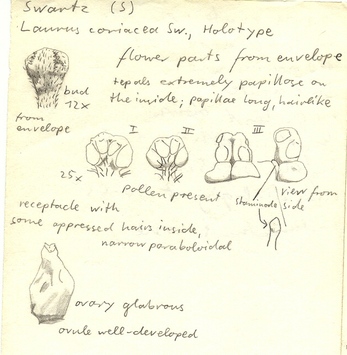 Swartz (S)
Laurus coriacea Sw., Holotype
flower parts from envelope
tepals extremely papillose on
the inside; papillae long, hairlike
bud
12x
from
envelope
I
II
III
25x
pollen present
view from
side
staminode
receptacle with
some appressed hairs inside,
narrow paraboloidal
ovary glabrous
ovule well-developed